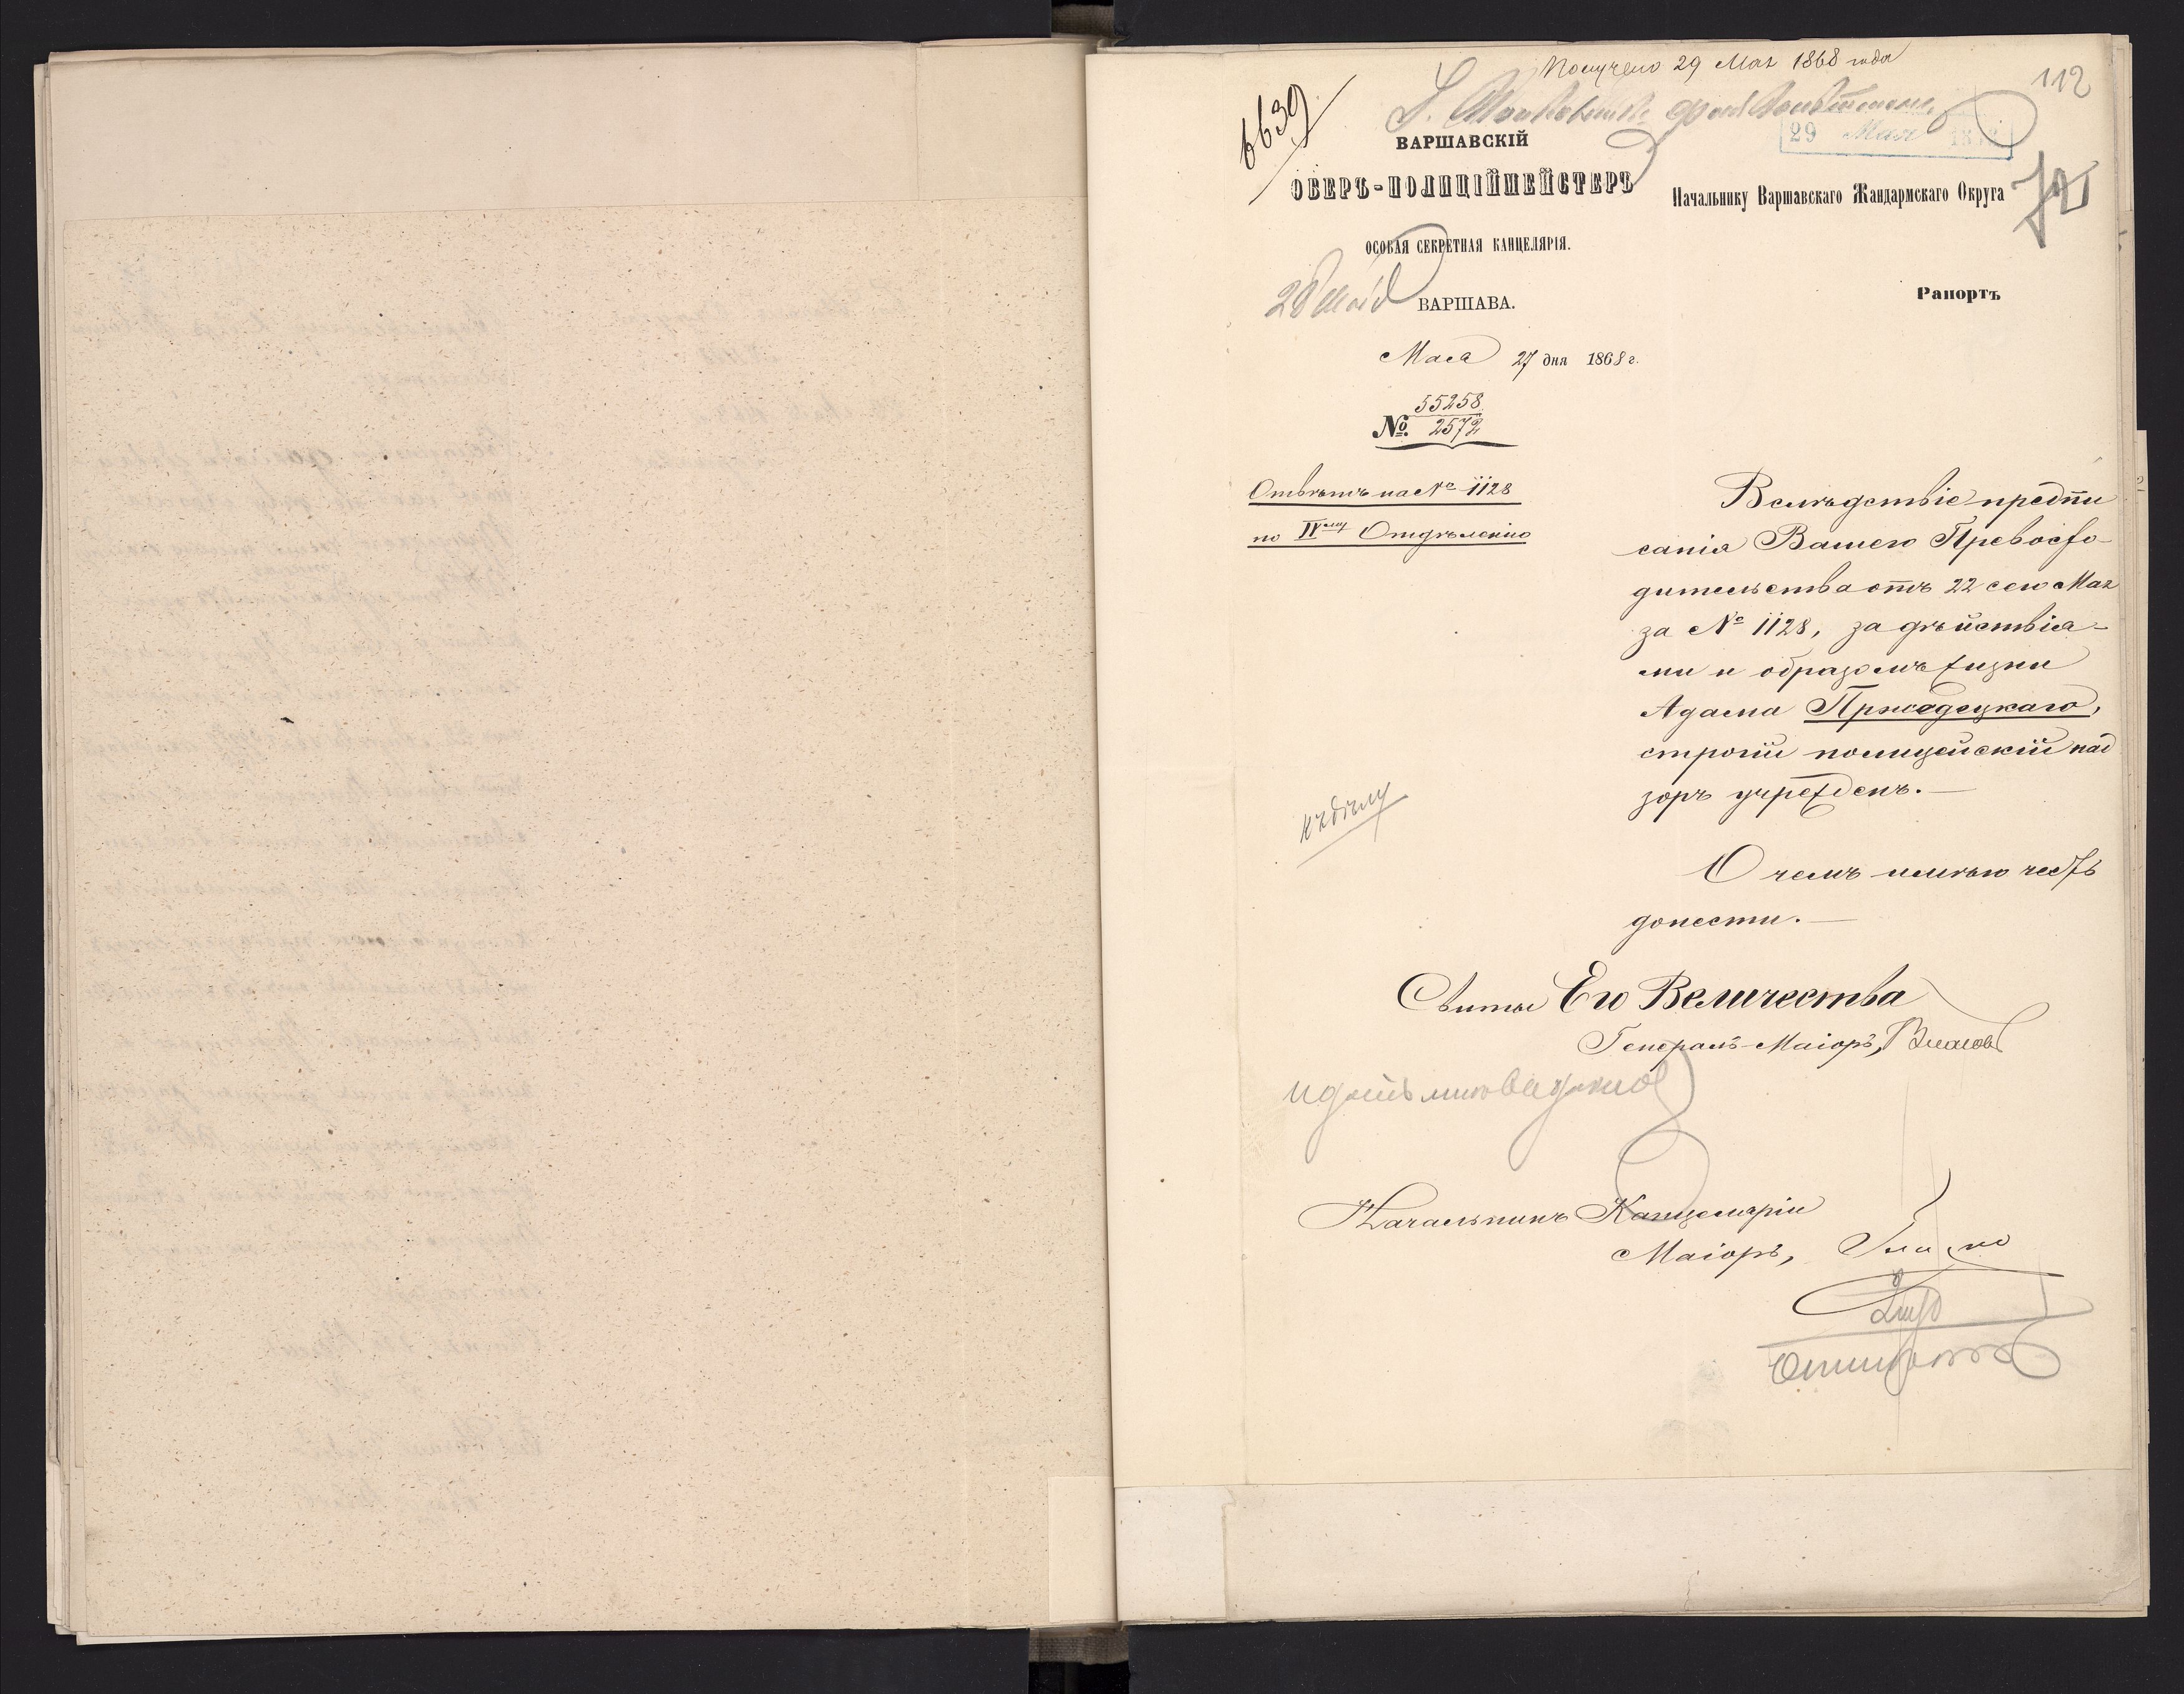 Получено 29 Мая 1868 года
112
6639
29 Мая
ВАРШАВСКІЙ
ОБЕРЪ-ПОЛИЦІЙМЕЙСТЕРЪ
Начальнику Варшавскаго Жандармскаго Округа
ОСОБАЯ СЕКРЕТНАЯ КАНЦЕЛЯРІЯ.
28 Мая
ВАРШАВА.
Рапортъ
Мая 27 дня 1868 г.
55258
№ 2572
Отвѣтъ на № 1128
по IV ому Отдѣленію
Вслѣдствіе предпи
санія Вашего Превосхо-
дительства отъ 22 сего Мая
за № 1128, за дѣйствія-
ми и образомъ жизни
Адама Пржедецкаго,
строгій полицейскій над
зоръ учрежденъ.—
къ дѣлу
О чемъ имѣю честь
донести.—
Свиты Его Величества
Генералъ-Маіоръ, Власовъ
Начальникъ Канцеляріи
Маіоръ,